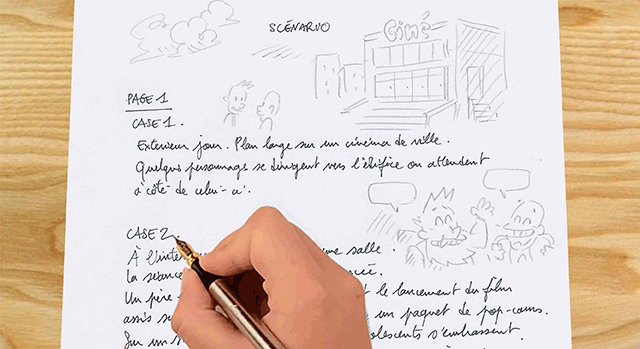 SCÉNARIO
Ciné
PAGE 1
CASE 1.
Exterieur jour. Plan large sur un cinéma de ville.
Quelques personnages se dirigent vers l'édifice ou attendent
à côté de celui-ci.
CASE 2.
À l'inte une salle.
la séance cée.
Un père t le lancement du film
assis s un paquet de pop-corns.
Sur un s olescents s'embrassent.